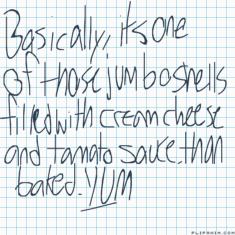 Basically, its one
of those jumboshells
filled with cream cheese
and tamato sauce. than
baked. YUM
FLIPANIM.COM